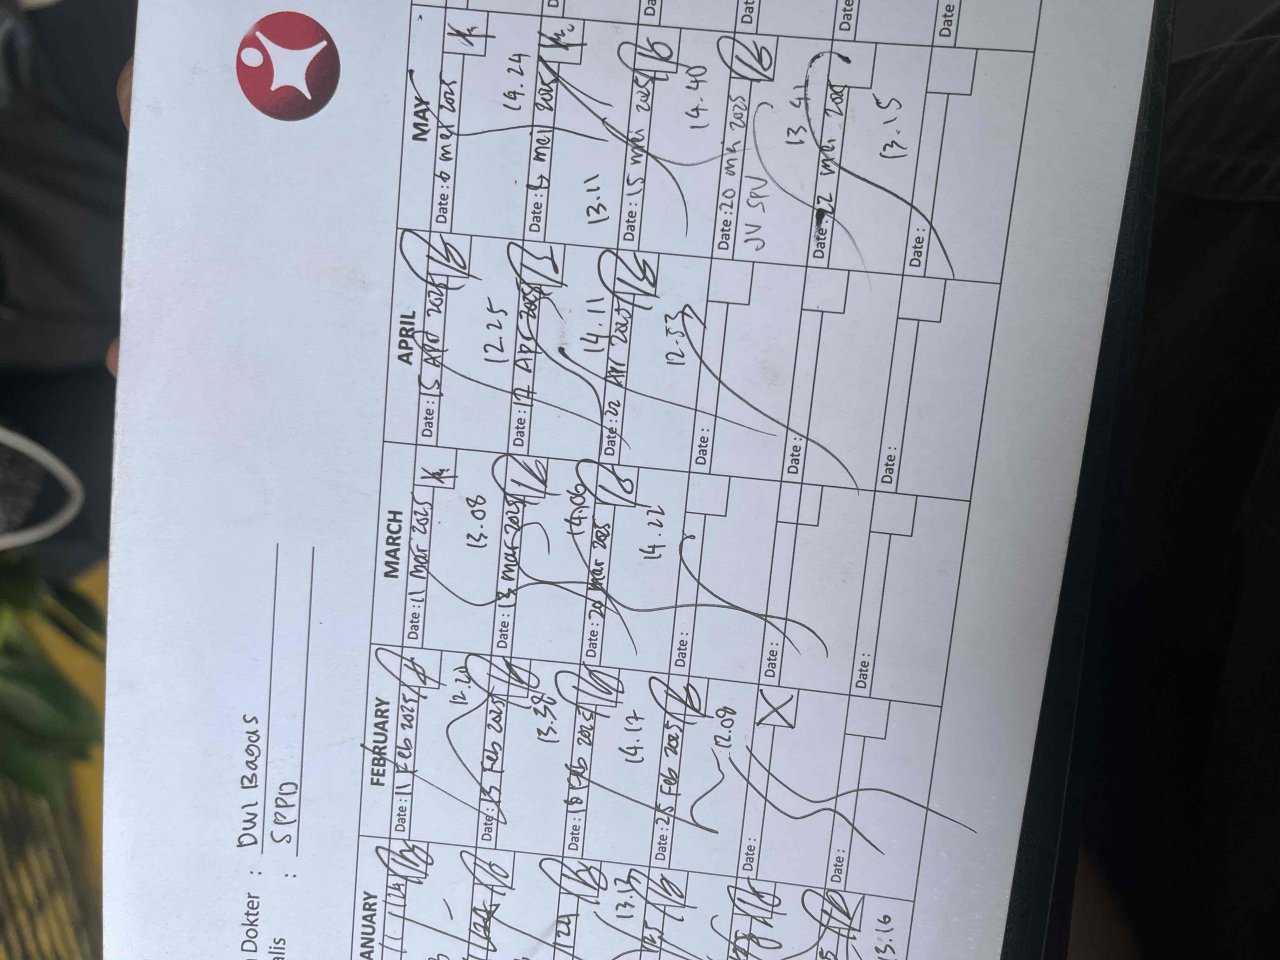 Dokter : Dwi Bagus
alis : SPPD
ANUARY
13.13
13.16
FEBRUARY
Date: 11 Feb 2025
12.20
Date: 13 Feb 2025
13.38
Date: 18 Feb 2025
14.17
Date: 25 Feb 2025
12.08
Date:
Date:
MARCH
Date: 11 Mar 2025
13.08
Date: 13 mar 2025
14.06
Date: 20 mar 2025
14.22
Date:
Date:
Date:
APRIL
Date: 15 Apr 2025
12.25
Date: 17 Apr 2025
14.11
Date: 22 Apr 2025
12.53
Date:
Date:
Date:
MAY
Date: 6 mei 2025
14.24
Date: mei 2025
13.11
Date: 15 mei 2025
14.40
Date: 20 mei 2025
JV SPV
13.41
Date: 22 mei 2025
13.15
Date:
D
Da
Dat
Date
Date